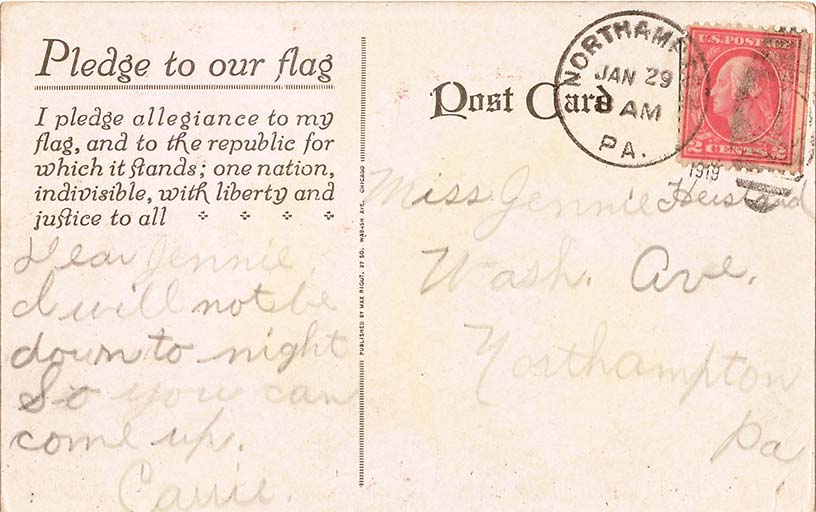 Pledge to our flag
I pledge allegiance to my
flag, and to the republic for
which it stands; one nation,
indivisible, with liberty and
justice to all
Dear Jennie,
I will not be
down to night
So you can
come up.
Carrie.
PUBLISHED BY MAX RIGOT, 27 SO. WABASH AVE, CHICAGO
Post Card
NORTHAMPT
JAN 29
AM
PA.
1919
U.S. POSTAGE
2 CENTS 2
Miss Jennie
Wash. Ave.
Northampton
Pa